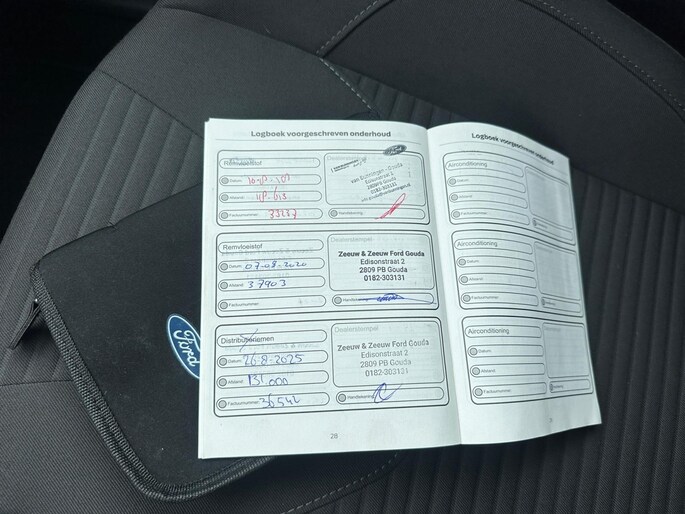 Logboek voorgeschreven onderhoud
Remvloeistof
Datum
Afstand
Factuurnummer 33237
Dealerstempel
Gouda
Edisonstraat 2
2809PB Gouda
0182-303131
Handtekening
Remvloeistof
Datum 07-08-2020
Afstand 37903
Factuurnummer
Dealerstempel
Zeeuw & Zeeuw Ford Gouda
Edisonstraat 2
2809 PB Gouda
0182-303131
Handtekening
Distributieriemen
Datum 26-8-2025
Afstand 131.000
Factuurnummer 36542
Dealerstempel
Zeeuw & Zeeuw Ford Gouda
Edisonstraat 2
2809 PB Gouda
0182-303131
Handtekening
20
Logboek voorgeschreven onderhoud
Airconditioning
Datum
Afstand
Factuurnummer
Airconditioning
Datum
Afstand
Factuurnummer
Airconditioning
Datum
Afstand
Factuurnummer
Ford